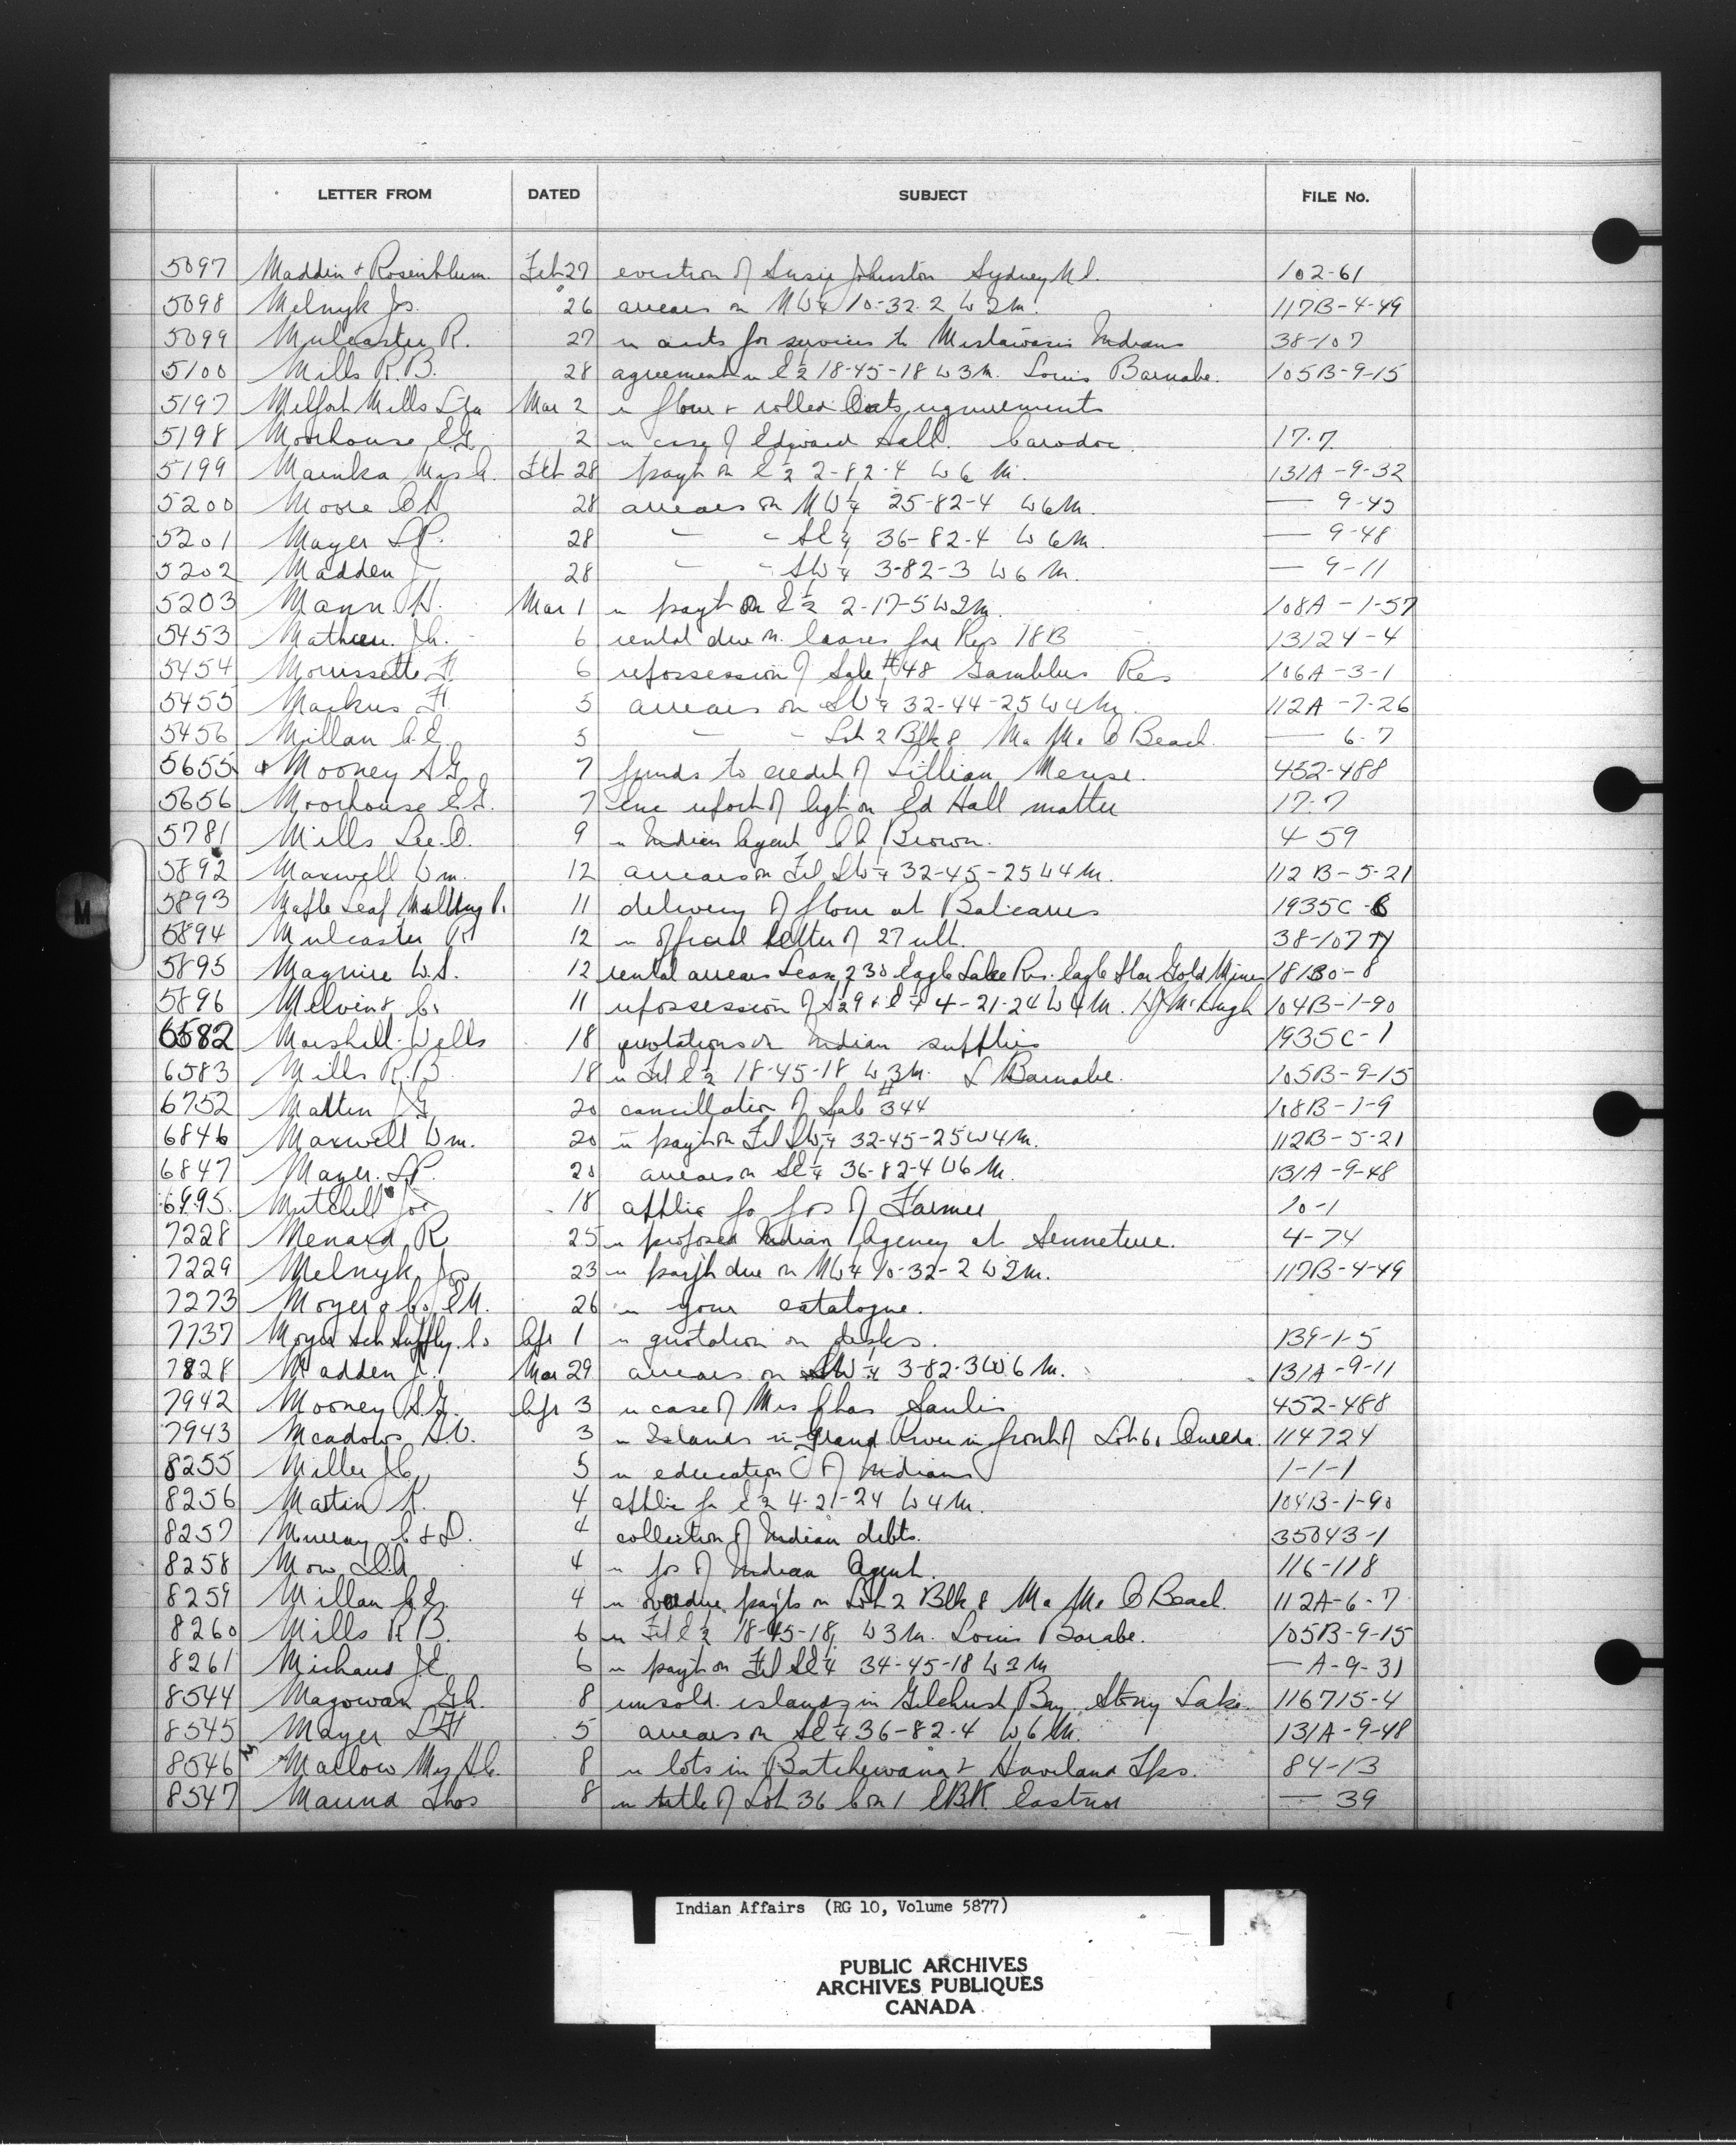 LETTER FROM DATED SUBJECT FILE No.
5097 Maddin & Rosenblum Feb 27 eviction of Susie Johnston Sydney N.S. 102-61
5098 Melnyk Jos. 26 arrears on NW¼ 10-32-2 W2M. 117B-4-49
5099 Mulcaster R. 27 re accts for services to Mistawasis Indians 38-107
5100 Mills R.B. 28 agreement re E½ 18-45-18 W3M. Louis Barnabe. 105B-9-15
5197 Melfort Mills Ltd Mar 2 re flour & rolled Oats requirements
5198 Moorhouse C.G. 2 re case of Edward Hall. Caradoc. 17-7
5199 Mainka Mrs A. Feb 28 payt on E½ 2-82-4 W6M. 131A-9-32
5200 Moore 28 arrears on NW¼ 25-82-4 W6M. — 9-45
5201 Mayer L.P. 28 " " SE¼ 36-82-4 W6M. — 9-48
5202 Madden J 28 " " SW¼ 3-82-3 W6M. — 9-11
5203 Mann H. Mar 1 re payt on E½ 2-17-5 W2M. 108A-1-57
5453 Mathieu J.A. 6 rental due on leases for Res 18B 13124-4
5454 Morrissette F. 6 repossession of Sale #48 Gamblers Res 106A-3-1
5455 Markus F. 5 arrears on SW¼ 32-44-25 W4M. 112A-7-26
5456 Millan A.E. 5 " " Lot 2 Blk 8 Ma Me O Beach. — 6-7
5655 & Mooney S.G. 7 funds to credit of Lillian 452-488
5656 Moorhouse C.G. 7 Enc report of Agt on Ed Hall matter 17-7
5781 Mills Lee O. 9 re Indian Agent Brown. 4-59
5892 Maxwell Wm. 12 arrears on Frl SW¼ 32-45-25 W4M. 112B-5-21
5893 Maple Leaf Milling Co. 11 delivery of flour at Balcarres 1935C-6
5894 Mulcaster R 12 re official letter of 27 ult. 38-107
5895 Maguire W.S. 12 rental arrears Lease 230 Eagle Lake Res. Eagle Star Gold Mines 18130-8
5896 Melvin & Co 11 repossession of S½ 9 & E½ 4-21-24 W4M. McHugh 104B-1-90
6582 Marshall-Wells 18 quotations on Indian supplies 1935C-1
6583 Mills R.B. 18 re Frl E½ 18-45-18 W3M. L Barnabe. 105B-9-15
6752 Matten J.G. 20 cancellation of Sale #344 108B-1-9
6846 Maxwell Wm. 20 re payt on Frl SW¼ 32-45-25 W4M. 112B-5-21
6847 Mayer L.P. 20 arrears on SE¼ 36-82-4 W6M. 131A-9-48
6995 Mitchell Jos 18 applic for pos of Farmer 10-1
7228 Menard R 25 re proposed Indian Agency at Senneterre. 4-74
7229 Melnyk Jos 23 re payt due on NW¼ 10-32-2 W2M. 117B-4-49
7273 Moyer & Co E.N. 26 re your catalogue.
7737 Moyer Sch Supply Co Apr 1 re quotation on desks. 139-1-5
7828 Madden J. Mar 29 arrears on SW¼ 3-82-3 W6M. 131A-9-11
7942 Mooney S.G. Apr 3 re case of Mrs Chas Saulis 452-488
7943 Meadows S.V. 3 re Islands in Grand River in front of Lot 61 Oneida. 114724
8255 Miller J.C. 5 re education of Indians 1-1-1
8256 Martin R. 4 applic for E½ 4-21-24 W4M. 104B-1-90
8257 Murray C & D. 4 collection of Indian debts. 35043-1
8258 Mow 4 re pos of Indian Agent. 116-118
8259 Millan A.E. 4 re overdue payts on Lot 2 Blk 8 Ma Me O Beach. 112A-6-7
8260 Mills R B. 6 re Frl E½ 18-45-18 W3M. Louis Barabe. 105B-9-15
8261 Michaud J.E. 6 re payt on Frl SE¼ 34-45-18 W3M — A-9-31
8544 Magowan G.A. 8 unsold islands in Gilchrist Bay, Stony Lake. 116715-4
8545 Mayer 5 arrears on SE¼ 36-82-4 W6M. 131A-9-48
8546 Marlow Mrs 8 re lots in Batchewana & Haviland Tps. 84-13
8547 Maund Thos 8 re title of Lot 36 Con 1 EBR Eastnor — 39
M
Indian Affairs (RG 10, Volume 5877)
PUBLIC ARCHIVES
ARCHIVES PUBLIQUES
CANADA